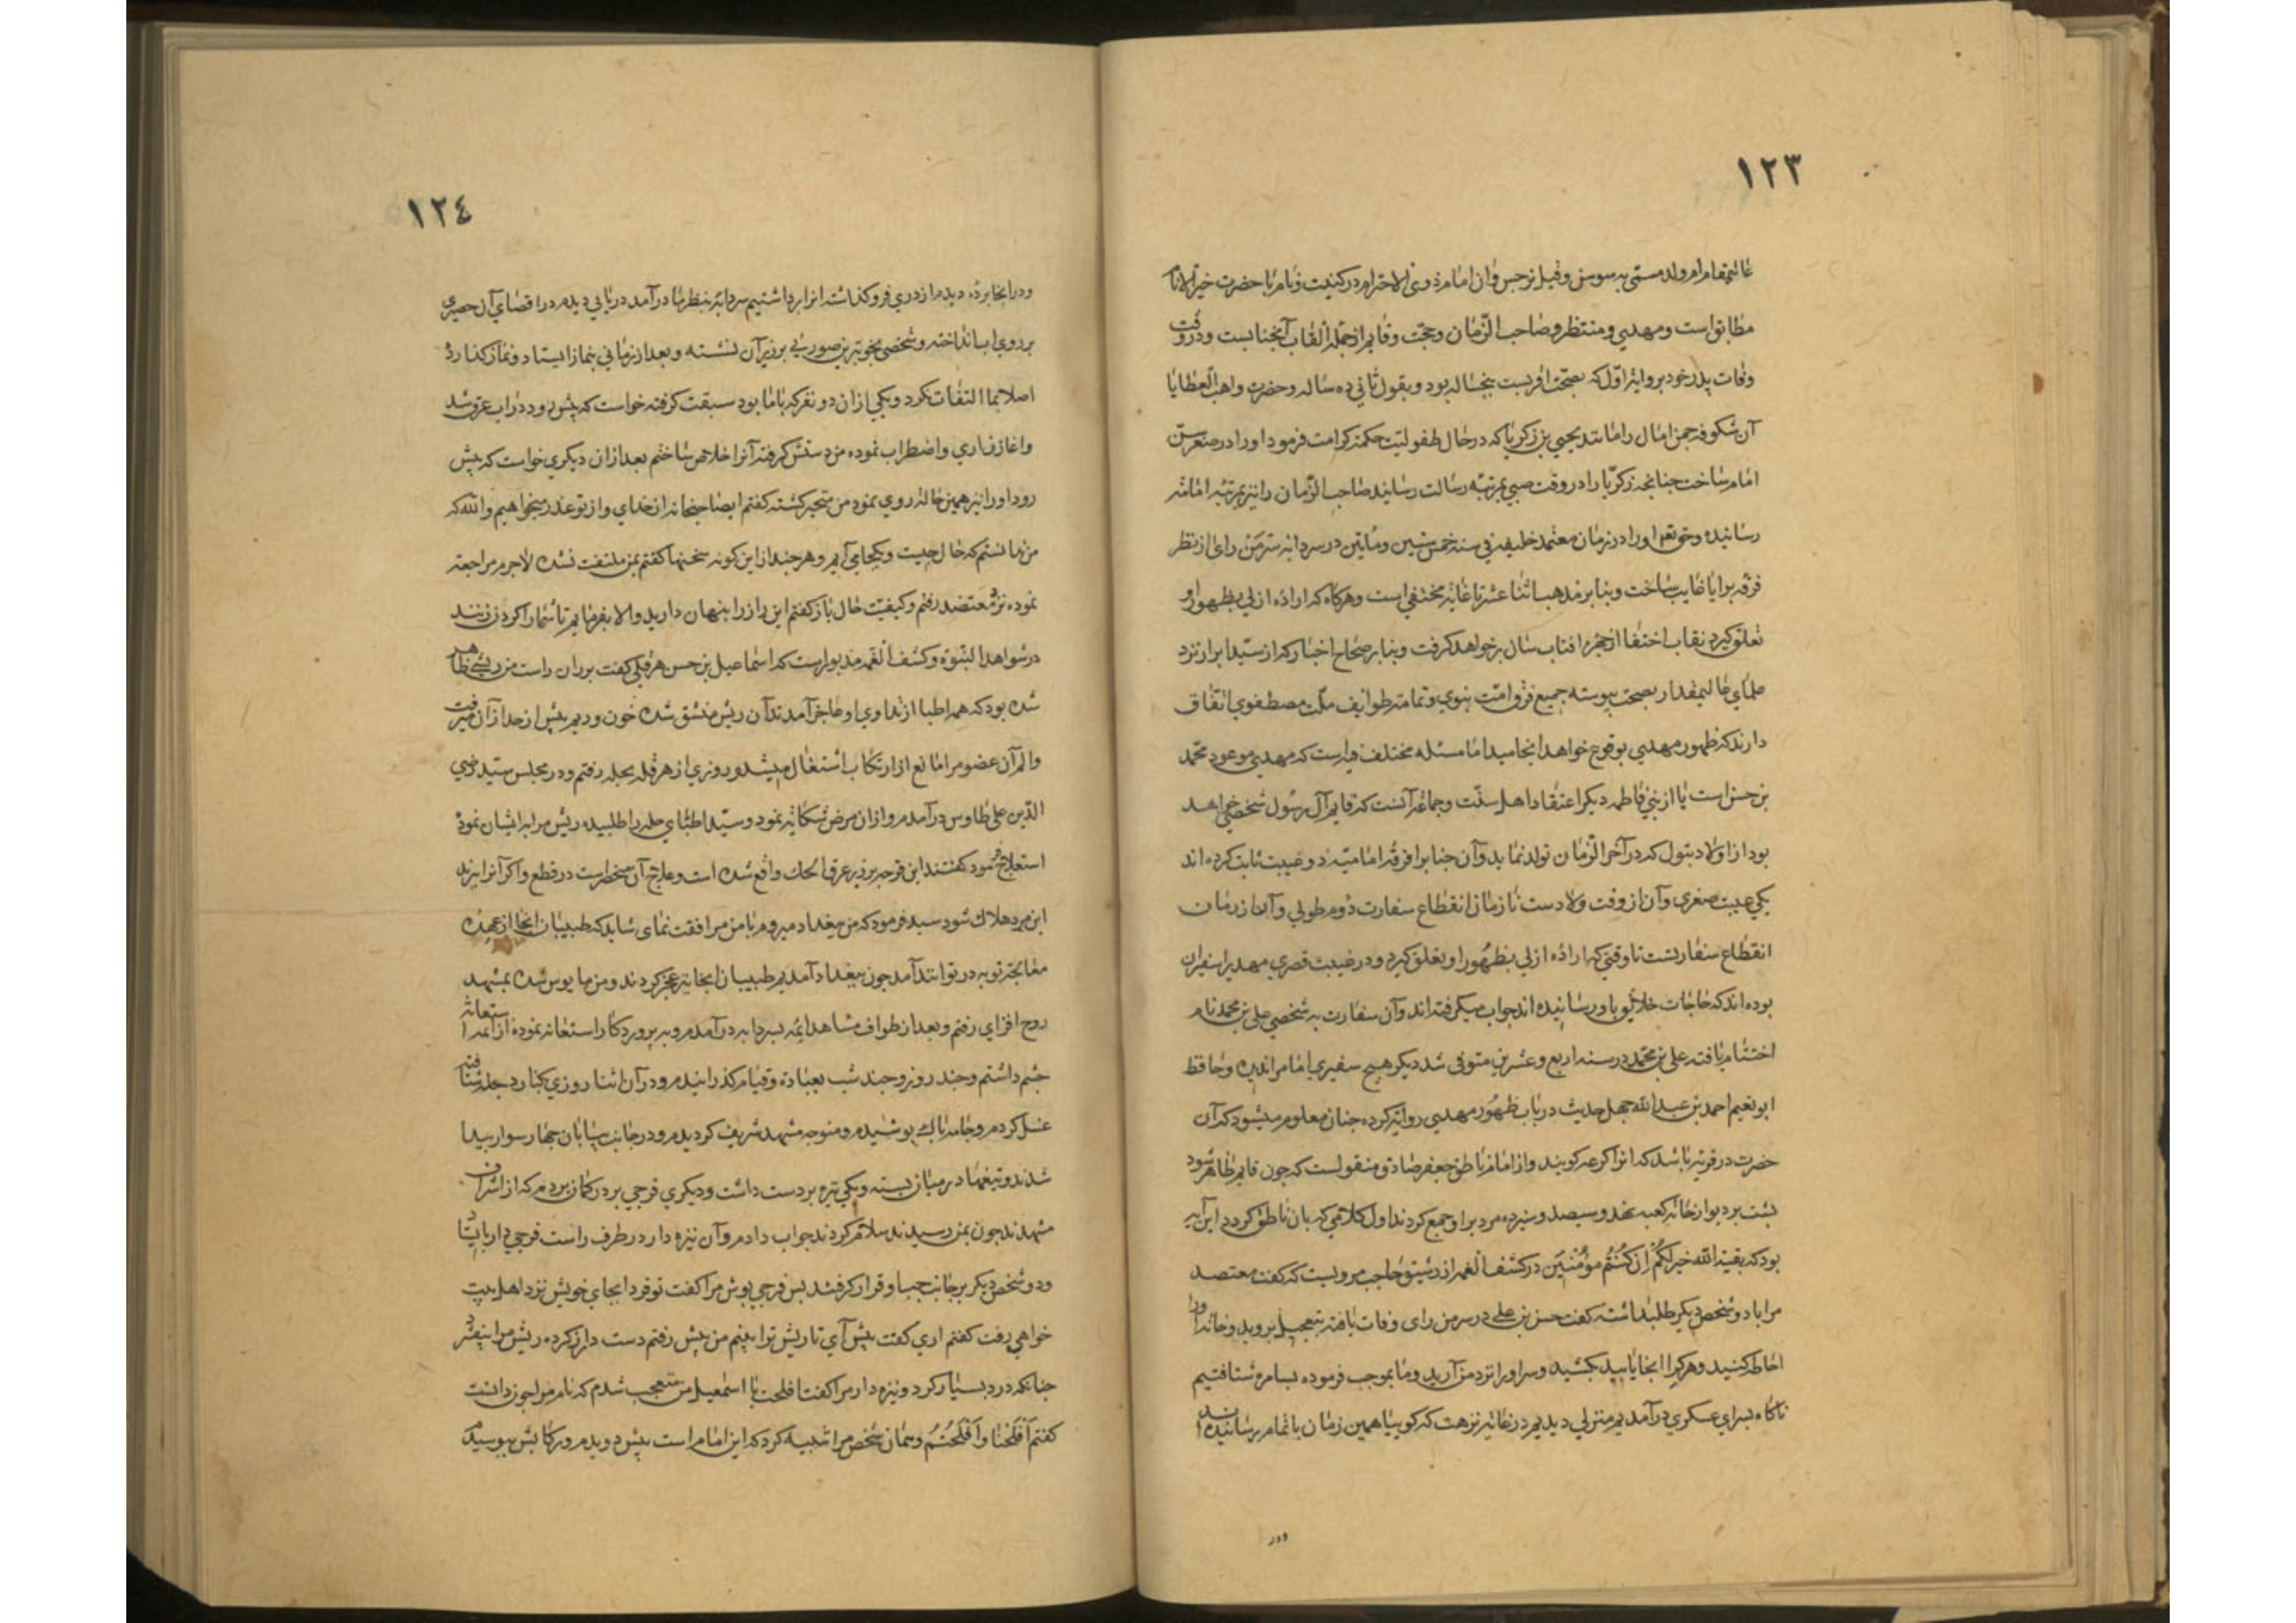 ١٢٣
عالیمقام ام ولد مسمی به سوسن وقیل نرجس وان امام ذوی الاحترام در کنیت ونام با حضرت خیر الانام
مطابق است ومهدی ومنتظر وصاحب الزمان وحجت وقایم از جمله القاب آنجنابست ودر وقت
وفات پدر خود بروایت اول که بصحت اقربست پنجساله بود وبقول ثانی ده ساله وحضرت واهب العطایا
آن شکوفه چمن امال را مانند یحیی بن زکریا که در حال طفولیت حکمت کرامت فرمود اورا در صغر سن
امام ساخت چنانچه زکریا را در وقت صبی بمرتبه رسالت رسانید صاحب الزمان را نیز بمرتبه امامت
رسانیده وحق تعه اورا در زمان معتمد خلیفه فی سنه خمس ستین ومایتین در سردابه سرمن رای از نظر
فرقه برایا غایب ساخت وبنا بر مذهب اثنا عشر تا غایة مختفی است وهرکاه که اراده ازلی بظهور او
تعلق کیرد نقاب اختفا از چهره افتاب سان بر خواهد کرفت وبنا بر صحاح اخبار که از سید ابرار نزد
علمای عالیمقدار بصحت پیوسته جمیع فرق امت نبوی وتمامت طوایف ملت مصطفوی اتفاق
دارند که ظهور مهدی بوقوع خواهد انجامید اما مسئله مختلف فیه است که مهدی موعود محمد
بن حسن است یا از بنی فاطمه دیکر اعتقاد اهل سنت وجماعه آنست که قایم آل رسول شخصی خواهد
بود از اولاد بتول که در آخر الزمان تولد نماید وآن جنابرا فرقه امامیه دو غیبت ثابت کرده اند
یکی غیبت صغری وآن از وقت ولادست تا زمان انقطاع سفارت دوم طولی وآن از زمان
انقطاع سفارتست تا وقتی که اراده ازلی بظهور او تعلق کیرد ودر غیبت قصری مهدیرا سفیران
بوده اند که حاجات خلایق باو رسانیده اند جواب میکرفته اند وآن سفارت به شخصی علی بن محمد نام
اختتام یافته علی بن محمد در سنه اربع وعشرین متوفی شد دیکر هیچ سفیری امام را ندیده وحافظ
ابو نعیم احمد بن عبد الله چهل حدیث در باب ظهور مهدی روایة کرده چنان معلوم میشود که آن
حضرت در قریه باشد که انرا کرعه کویند واز امام ناطق جعفر صادق منقولست که چون قایم ظاهر شود
پشت بر دیوار خانه کعبه نهد وسیصد وسیزده مرد بر او جمع کردند اول کلامی که بان ناطق کردد این آیه
بود که بقیة الله خیر لکم ان کنتم مؤمنین در کشف الغمه از رشیق حاجب مرویست که کفت معتضد
مرا با دو شخص دیکر طلب داشته کفت حسن بن علی در سرمن رای وفات یافته بتعجیل بروید وخانه اورا
احاطه کنید وهر کرا انجا یابید بکشید وسر اورا نزد من آرید وما بموجب فرموده بسامره شتافتیم
ناکاه بسرای عسکری در آمدیم منزلی دیدیم در غایة نزهت که کوییا همین زمان باتمام رسانیده اند
ودر
١٢٤
ودر انجا برده دیدیم از دری فرو کذاشته انرا برداشتیم سردابه بنظر ما در آمد دریایی دیدم در اقصای آن حصیری
بر روی اب انداخته وشخصی بخوبترین صورتی بر زبر آن نشسته وبعد از زمانی بنماز ایستاد ونماز کذارد
اصلا بما التفات نکرد ویکی از ان دو نفر که با ما بود سبقت کرفته خواست که پیش رود در اب غرق شد
واغاز زاری واضطراب نموده من دستش کرفته آنرا خلاص ساختم بعد از ان دیکری خواست که پیش
رود اورا نیز همین حاله روی نمود من متحیر کشته کفتم ایصاحبخانه از خدای واز تو عذر میخواهیم والله که
من ندانستم که حال چیست وبکجا می آیم وهر چند از این کونه سخنها کفتم بمن ملتفت نشده لاجرم مراجعه
نموده نزد معتضد رفتم وکیفیت حال باز کفتم این راز را پنهان دارید والا بفرمایم تا شمارا کردن زنند
در شواهد النبوة وکشف الغمه مذبوراست که اسماعیل بن حسن هرقلی کفت بر ران راست من ریشی ظاهر
شده بود که همه اطبا از تداوی او عاجز آمدند آن ریش منشق شده خون وریم بیش از حد از آن میرفت
والم آن عضو مرا مانع از ارتکاب اشتغال میشد وروزی از هرقله بحله رفتم ودر مجلس سید رضی
الدین علی طاوس در آمدم واز ان مرض شکایة نمود وسید اطبای حله را طلبیده ریش مرا بر ایشان نمود
استعلاج نمود کفتند این قرحه بر زبر عرق اکحل واقع شده است وعلاج آن منحصر است در قطع واکر آنرا ببرند
این مرد هلاک شود سید فرمود که من ببغداد میروم با من مرافقت نمای شاید که طبیبان انجا از عهده
معالجه تو به در توانند آمد چون ببغداد آمدیم طبیبان انجا نیز عجز کردند ومن مایوس شده بمشهد
روح افزای رفتم وبعد از طواف مشاهد ائمه بسردابه در آمدم وبه پروردکار استغاثه نموده از ائمه استعانة
چشم داشتم وچند روز وچند شب بعباده وقیام کذرانیدم ودر آن اثنا روزی بکنار دجله شتافته
غسل کردم وجامه پاک پوشیدم ومتوجه مشهد شریف کردیدم ودر جانب بیابان چهار سوار پیدا
شدند وتیغها در میان بسته ویکی نیزه بر دست داشت ودیکری فرجی بر در کمان بردم که از اشراف
مشهدند چون بمن رسیدند سلام کردند جواب دادم وآن نیزه دار در طرف راست فرجی دار بایستاد
ودو شخص دیکر بر جانب چپ او قرار کرفتند پس فرجی پوش مرا کفت تو فردا بجای خویش نزد اهل بیت
خواهی رفت کفتم اری کفت پیش آی تا ریش ترا ببینم من پیش رفتم دست دراز کرده ریش مرا بیفشرد
چنانکه درد بسیار کرد ونیزه دار مرا کفت افلحت یا اسمعیل من متعجب شدم که نام مرا چون دانست
کفتم أفلحنا وأفلحتم وهمان شخص مرا تنبیه کرد که این امام است پیش دویدم ورکابش ببوسیدم